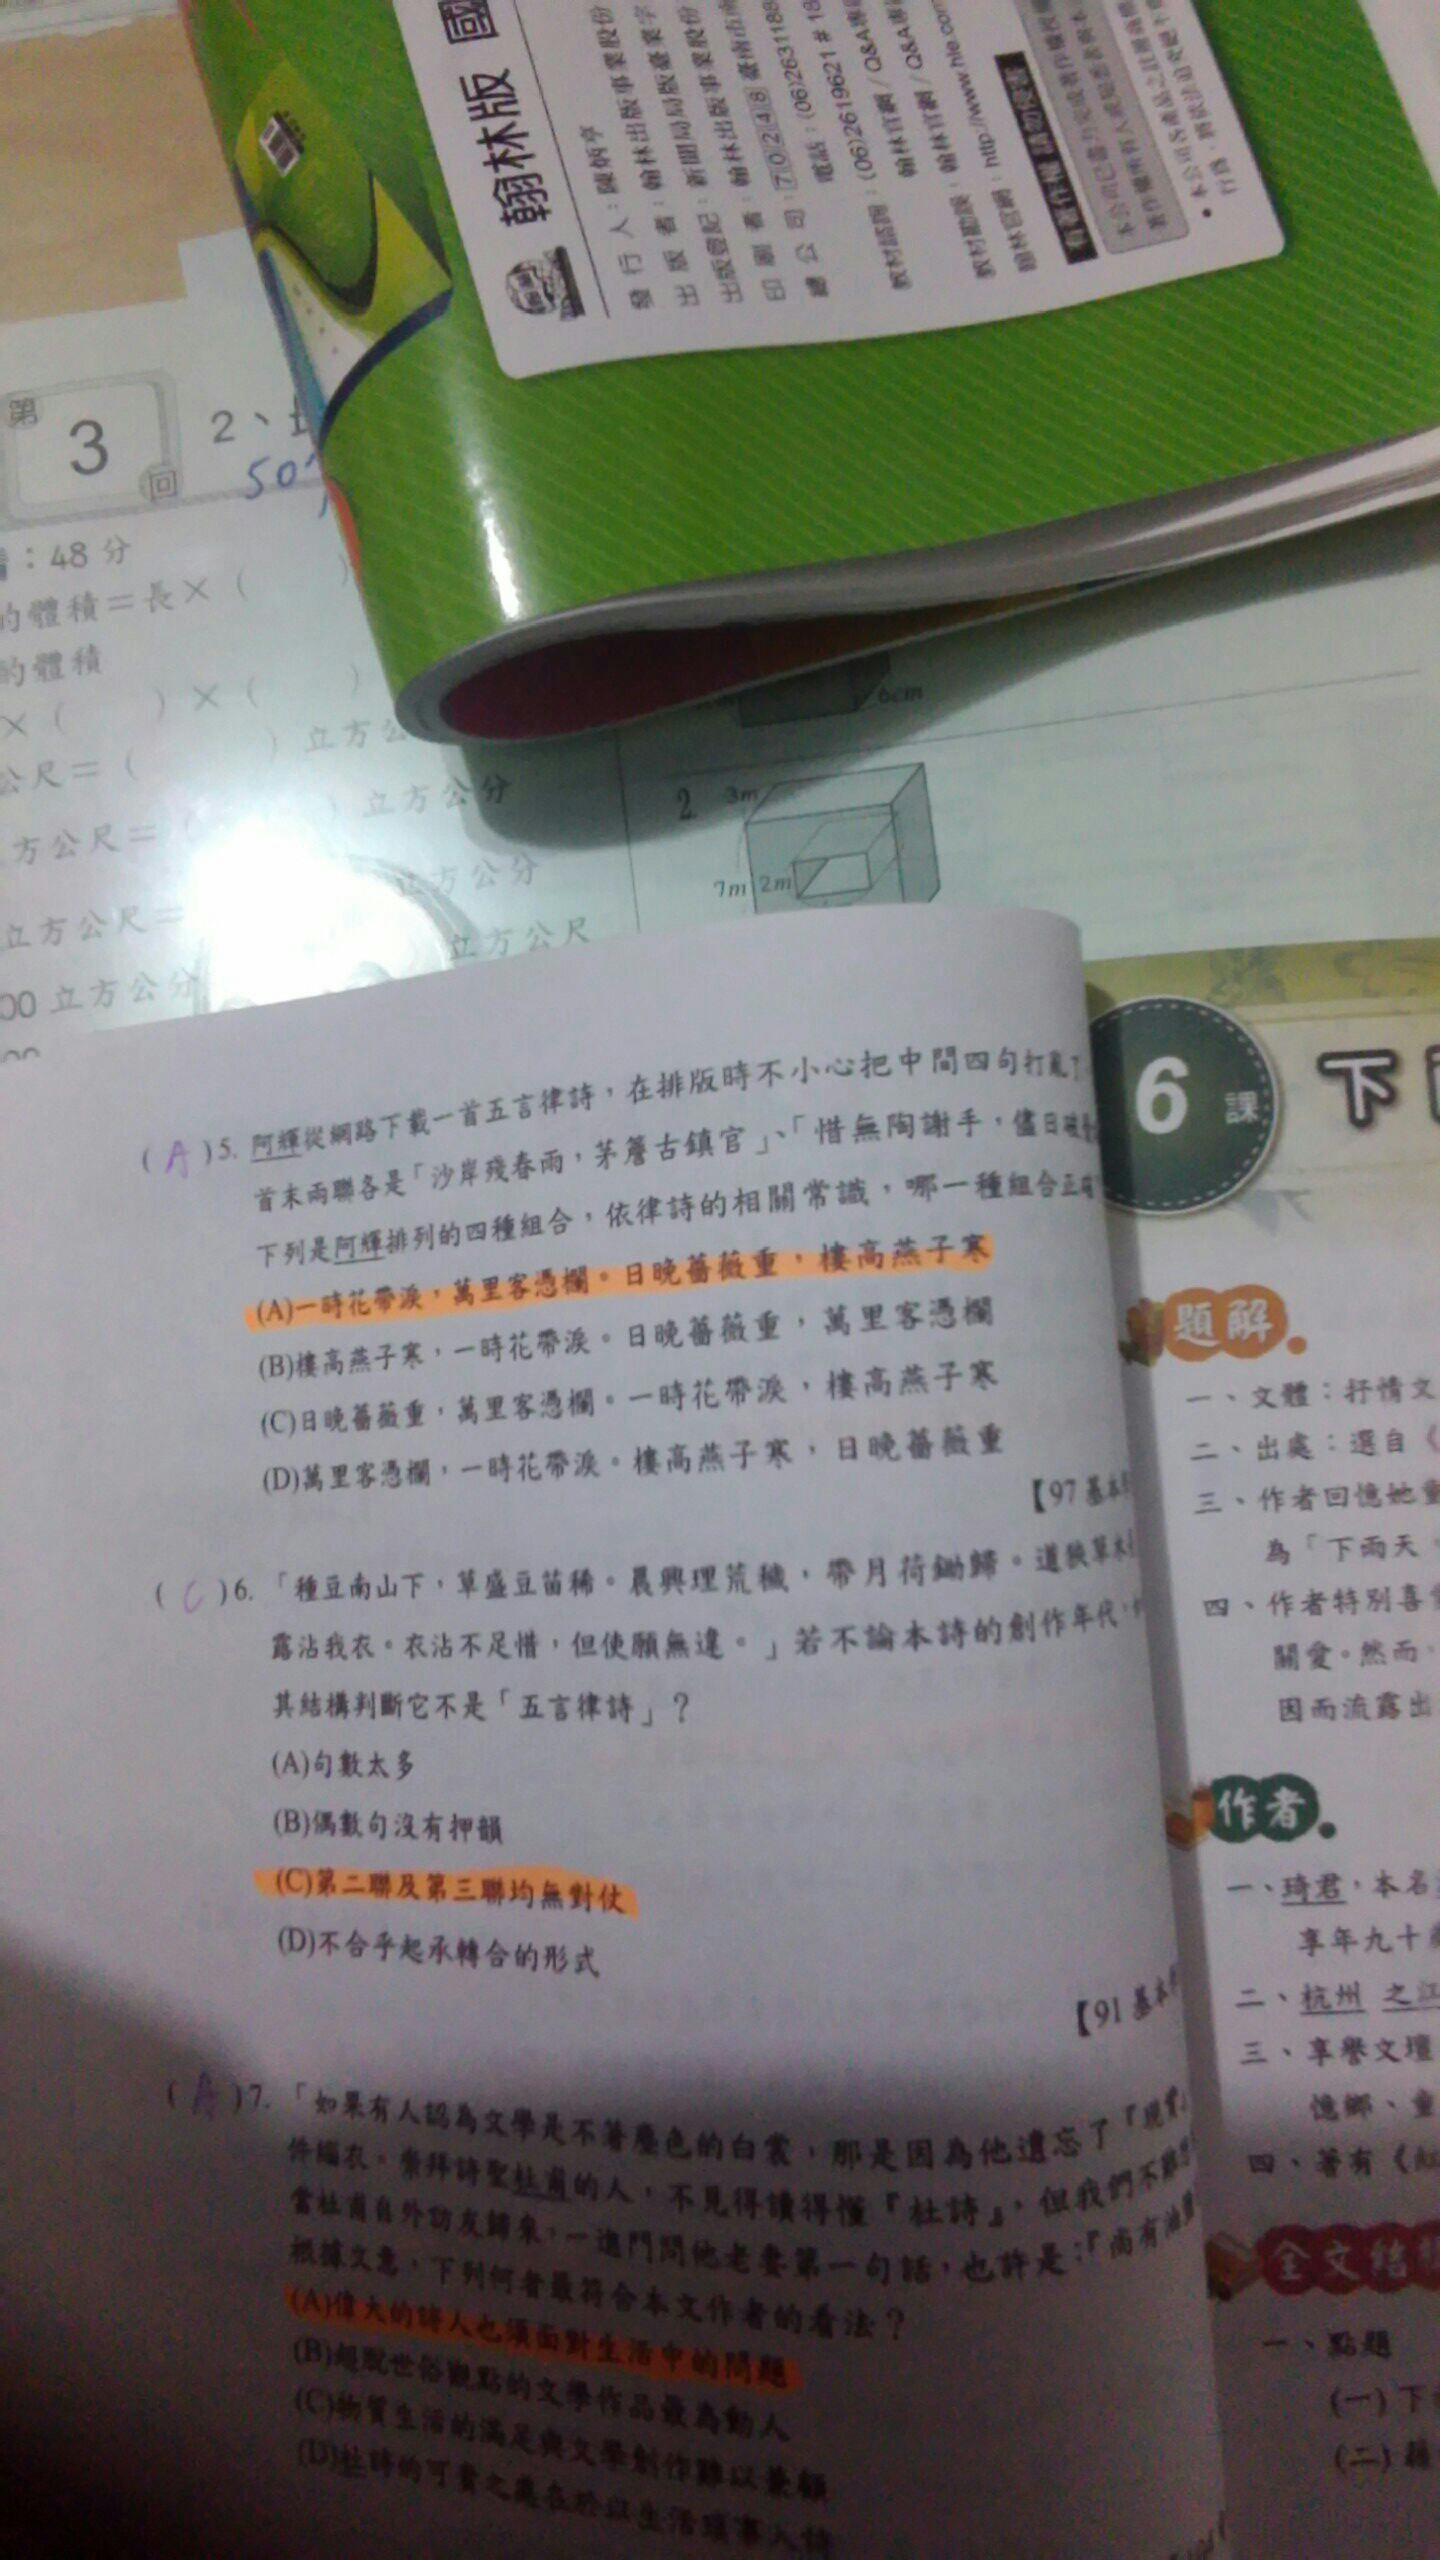 翰林版 國
發行人：陳炳亭
出版者：翰林出版事業股份
出版登記：新聞局局版臺業字
印刷者：翰林出版事業股份
總公司：70248臺南市
電話：(06)2631188
教材諮詢：(06)2619621#18
翰林官網/Q&A專
教材勘誤：翰林官網/Q&A專
翰林官網：http://www.hle.co
有著作權 請勿侵害
第3回 2、
50
：48分
的體積＝長×（ ）
的體積
×（ ）×（ ）
公尺＝（ ）立方公
方公尺＝（ ）立方公分
立方公尺＝ 立方公分
00立方公分 立方公尺
6cm
2.
3m
7m
2m
(A)5. 阿輝從網路下載一首五言律詩，在排版時不小心把中間四句打亂了
首末兩聯各是「沙岸殘春雨，茅簷古鎮官」、「惜無陶謝手，儘日破
下列是阿輝排列的四種組合，依律詩的相關常識，哪一種組合正確
(A)一時花帶淚，萬里客憑欄。日晚薔薇重，樓高燕子寒
(B)樓高燕子寒，一時花帶淚。日晚薔薇重，萬里客憑欄
(C)日晚薔薇重，萬里客憑欄。一時花帶淚，樓高燕子寒
(D)萬里客憑欄，一時花帶淚。樓高燕子寒，日晚薔薇重
【97基本
(C)6. 「種豆南山下，草盛豆苗稀。晨興理荒穢，帶月荷鋤歸。道狹草木
露沾我衣。衣沾不足惜，但使願無違。」若不論本詩的創作年代，
其結構判斷它不是「五言律詩」？
(A)句數太多
(B)偶數句沒有押韻
(C)第二聯及第三聯均無對仗
(D)不合乎起承轉合的形式
【91基本
(A)7. 「如果有人認為文學是不著塵色的白雲，那是因為他遺忘了『現實』
件縕衣。崇拜詩聖杜甫的人，不見得讀得懂『杜詩』，但我們不難想
當杜甫自外訪友歸來，一進門問他老妻第一句話，也許是：『尚有油鹽
根據文意，下列何者最符合本文作者的看法？
(A)偉大的詩人也須面對生活中的問題
(B)超脫世俗觀點的文學作品最為動人
(C)物質生活的滿足與文學創作難以兼顧
(D)杜詩的可貴之處在於以生活瑣事入詩
6課 下
題解
一、文體：抒情文
二、出處：選自《
三、作者回憶她童
為「下雨天，
四、作者特別喜
關愛。然而，
因而流露出
作者
一、琦君，本名
享年九十
二、杭州 之江
三、享譽文壇
憶鄉、童
四、著有《紅
全文結
一、點題
(一)下
(二)